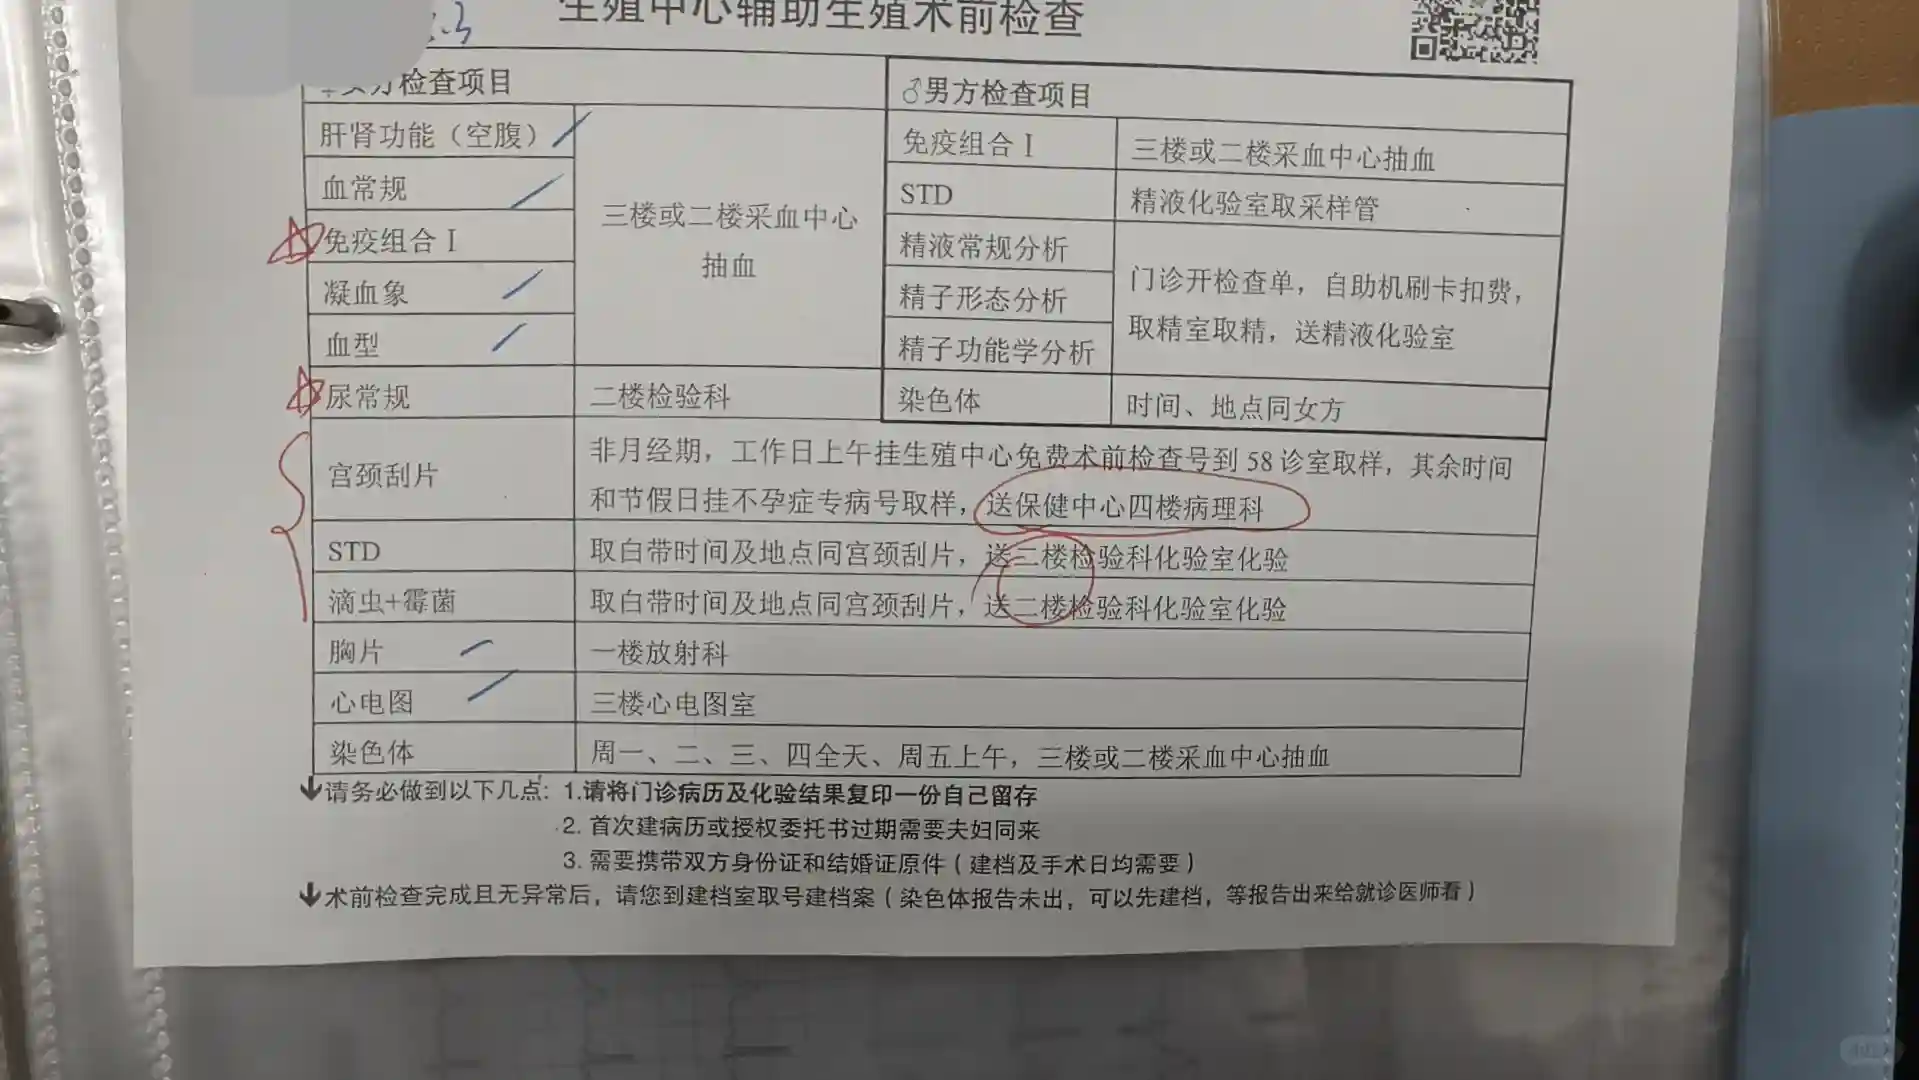 生殖中心辅助生殖术前检查
女方检查项目
♂男方检查项目
肝肾功能（空腹）
血常规
免疫组合Ⅰ
凝血象
血型
三楼或二楼采血中心
抽血
免疫组合Ⅰ
三楼或二楼采血中心抽血
STD
精液化验室取采样管
精液常规分析
精子形态分析
精子功能学分析
门诊开检查单，自助机刷卡扣费，
取精室取精，送精液化验室
尿常规
二楼检验科
染色体
时间、地点同女方
宫颈刮片
非月经期，工作日上午挂生殖中心免费术前检查号到 58 诊室取样，其余时间
和节假日挂不孕症专病号取样，送保健中心四楼病理科
STD
取白带时间及地点同宫颈刮片，送二楼检验科化验室化验
滴虫+霉菌
取白带时间及地点同宫颈刮片，送二楼检验科化验室化验
胸片
一楼放射科
心电图
三楼心电图室
染色体
周一、二、三、四全天、周五上午，三楼或二楼采血中心抽血
↓请务必做到以下几点：1.请将门诊病历及化验结果复印一份自己留存
2. 首次建病历或授权委托书过期需要夫妇同来
3. 需要携带双方身份证和结婚证原件（建档及手术日均需要）
↓术前检查完成且无异常后，请您到建档室取号建档案（染色体报告未出，可以先建档，等报告出来给就诊医师看）